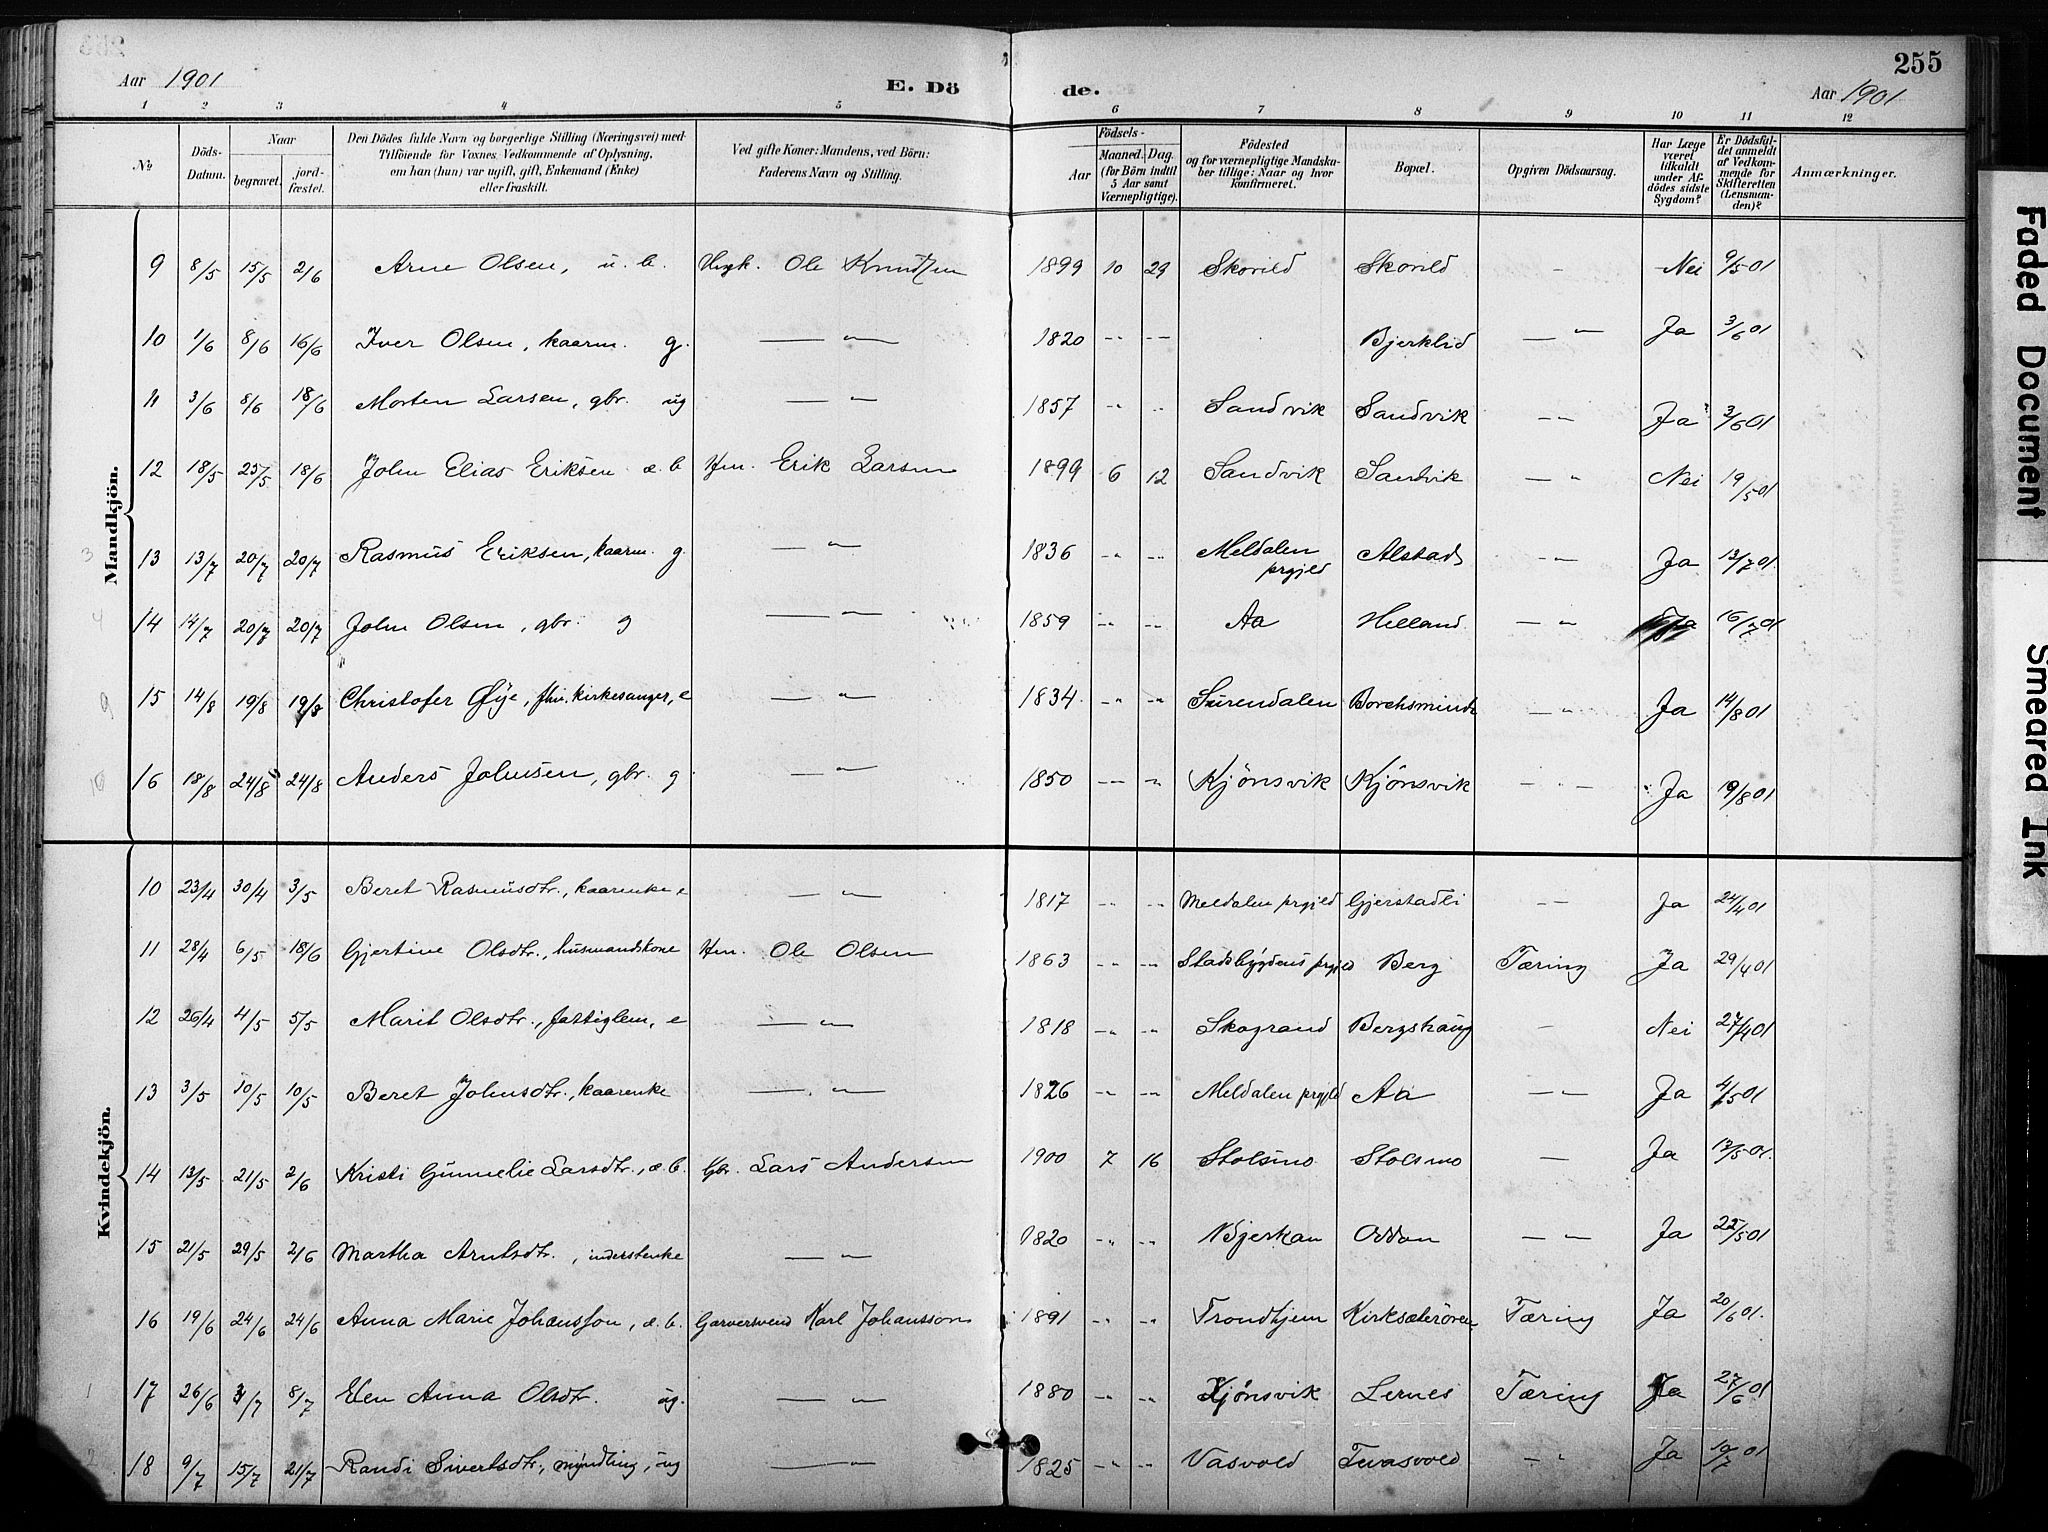 255
Aar 1901 E. Dö de. Aar 1901
1 2 3 4 5 6 7 8 9 10 11 12
No
Döds-Datum.
Naar begravet. jordfæstet.
Den Dödes fulde Navn og borgerlige Stilling (Næringsvei) med Tilföiende for Voxnes Vedkommende af Oplysning, om han (hun) var ugift, gift, Enkemand (Enke) eller fraskilt.
Ved gifte Koner: Mandens, ved Börn: Faderens Navn og Stilling.
Födsels- Aar Maaned. Dag. (for Börn indtil 5 Aar samt Værnepligtige).
Födested og for værnepligtige Mandskaber tillige: Naar og hvor konfirmeret.
Bopæl.
Opgiven Dödsaarsag.
Har Læge været tilkaldt under Afdödes sidste Sygdom?
Er Dödsfaldet anmeldt af Vedkommende for Skifteretten (Lensmanden)?
Anmærkninger.
Mandkjön.
9 8/5 15/5 2/6 Arne Olsen, u. b. Ole Knudsen 1899 10 29 Skorild Skorild - Nei 9/5 01
10 1/6 8/6 16/6 Iver Olsen, kaarm. g. — " — 1820 -- -- Bjerklid — " — Ja 3/6 01
11 3/6 8/6 18/6 Morten Larsen, gbr. ug — " — 1857 -- -- Sandvik Sandvik -- Ja 3/6 01
12 18/5 25/5 18/6 John Elias Eriksen æ. b Hm. Erik Larsen 1899 6 12 Sandvik Sandvik — " Nei 19/5 01
13 13/7 20/7 20/7 Rasmus Eriksen, kaarm. g. — " — 1836 -- -- Meldalen prgjeld Alstad -- Ja 13/7 01
14 14/7 20/7 20/7 John Olsen, gbr. g — " — 1859 -- -- Aa Helland — " Ja 16/7 01
15 14/8 19/8 19/8 Christofer Øye, fhv. kirkesanger, e — " — 1834 -- -- Surendalen Borchsminde — " Ja 14/8 01
16 18/8 24/8 24/8 Anders Johnsen, gbr. g — " — 1850 -- -- Kjönsvik Kjönsvik -- Ja 19/8 01
Kvindekjön.
10 23/4 30/4 3/5 Beret Rasmusdtr., kaarenke e — " — 1817 -- -- Meldalen prgjeld Gjerstadli -- Ja 24/4 01
11 28/4 6/5 18/6 Gjertine Olsdtr., husmandskone Hm. Ole Olsen 1863 -- -- Stadsbygdens prgjeld Berg Tæring Ja 29/4 01
12 26/4 4/5 5/5 Marit Olsdtr., fattiglem, e — " — 1818 -- -- Skogrand Bergstraug - Nei 27/4 01
13 3/5 10/5 10/5 Beret Johnsdtr., kaarenke — " — 1826 -- -- Meldalen prgjld Aa -- Ja 4/5 01
14 13/5 21/5 2/6 Kristi Gunnelie Larsdtr., æ. b. Gbr. Lars Andersen 1900 7 16 Stolsmo Stolsmo — Ja 13/5 01.
15 21/5 29/5 2/6 Martha Arntsdtr., inderstenke — " — 1820 -- -- Bjerkan Oddan -- Ja 22/5 01
16 19/6 24/6 24/6 Anna Marie Johansson, æ. b. Garversvend Karl Johansson 1891 -- -- Trondhjem Kirksæterören Tæring Ja 20/6 01.
17 26/6 3/7 8/7 Elen Anna Olsdtr. ug. — " — 1880 -- -- Kjönsvik Lernes Tæring Ja 27/6 01
18 9/7 15/7 21/7 Randi Sivertsdtr., myndling, ug — " — 1825 -- -- Vasvold Tuvasvold — " Ja 10/7 01
Faded Document
Smeared Ink